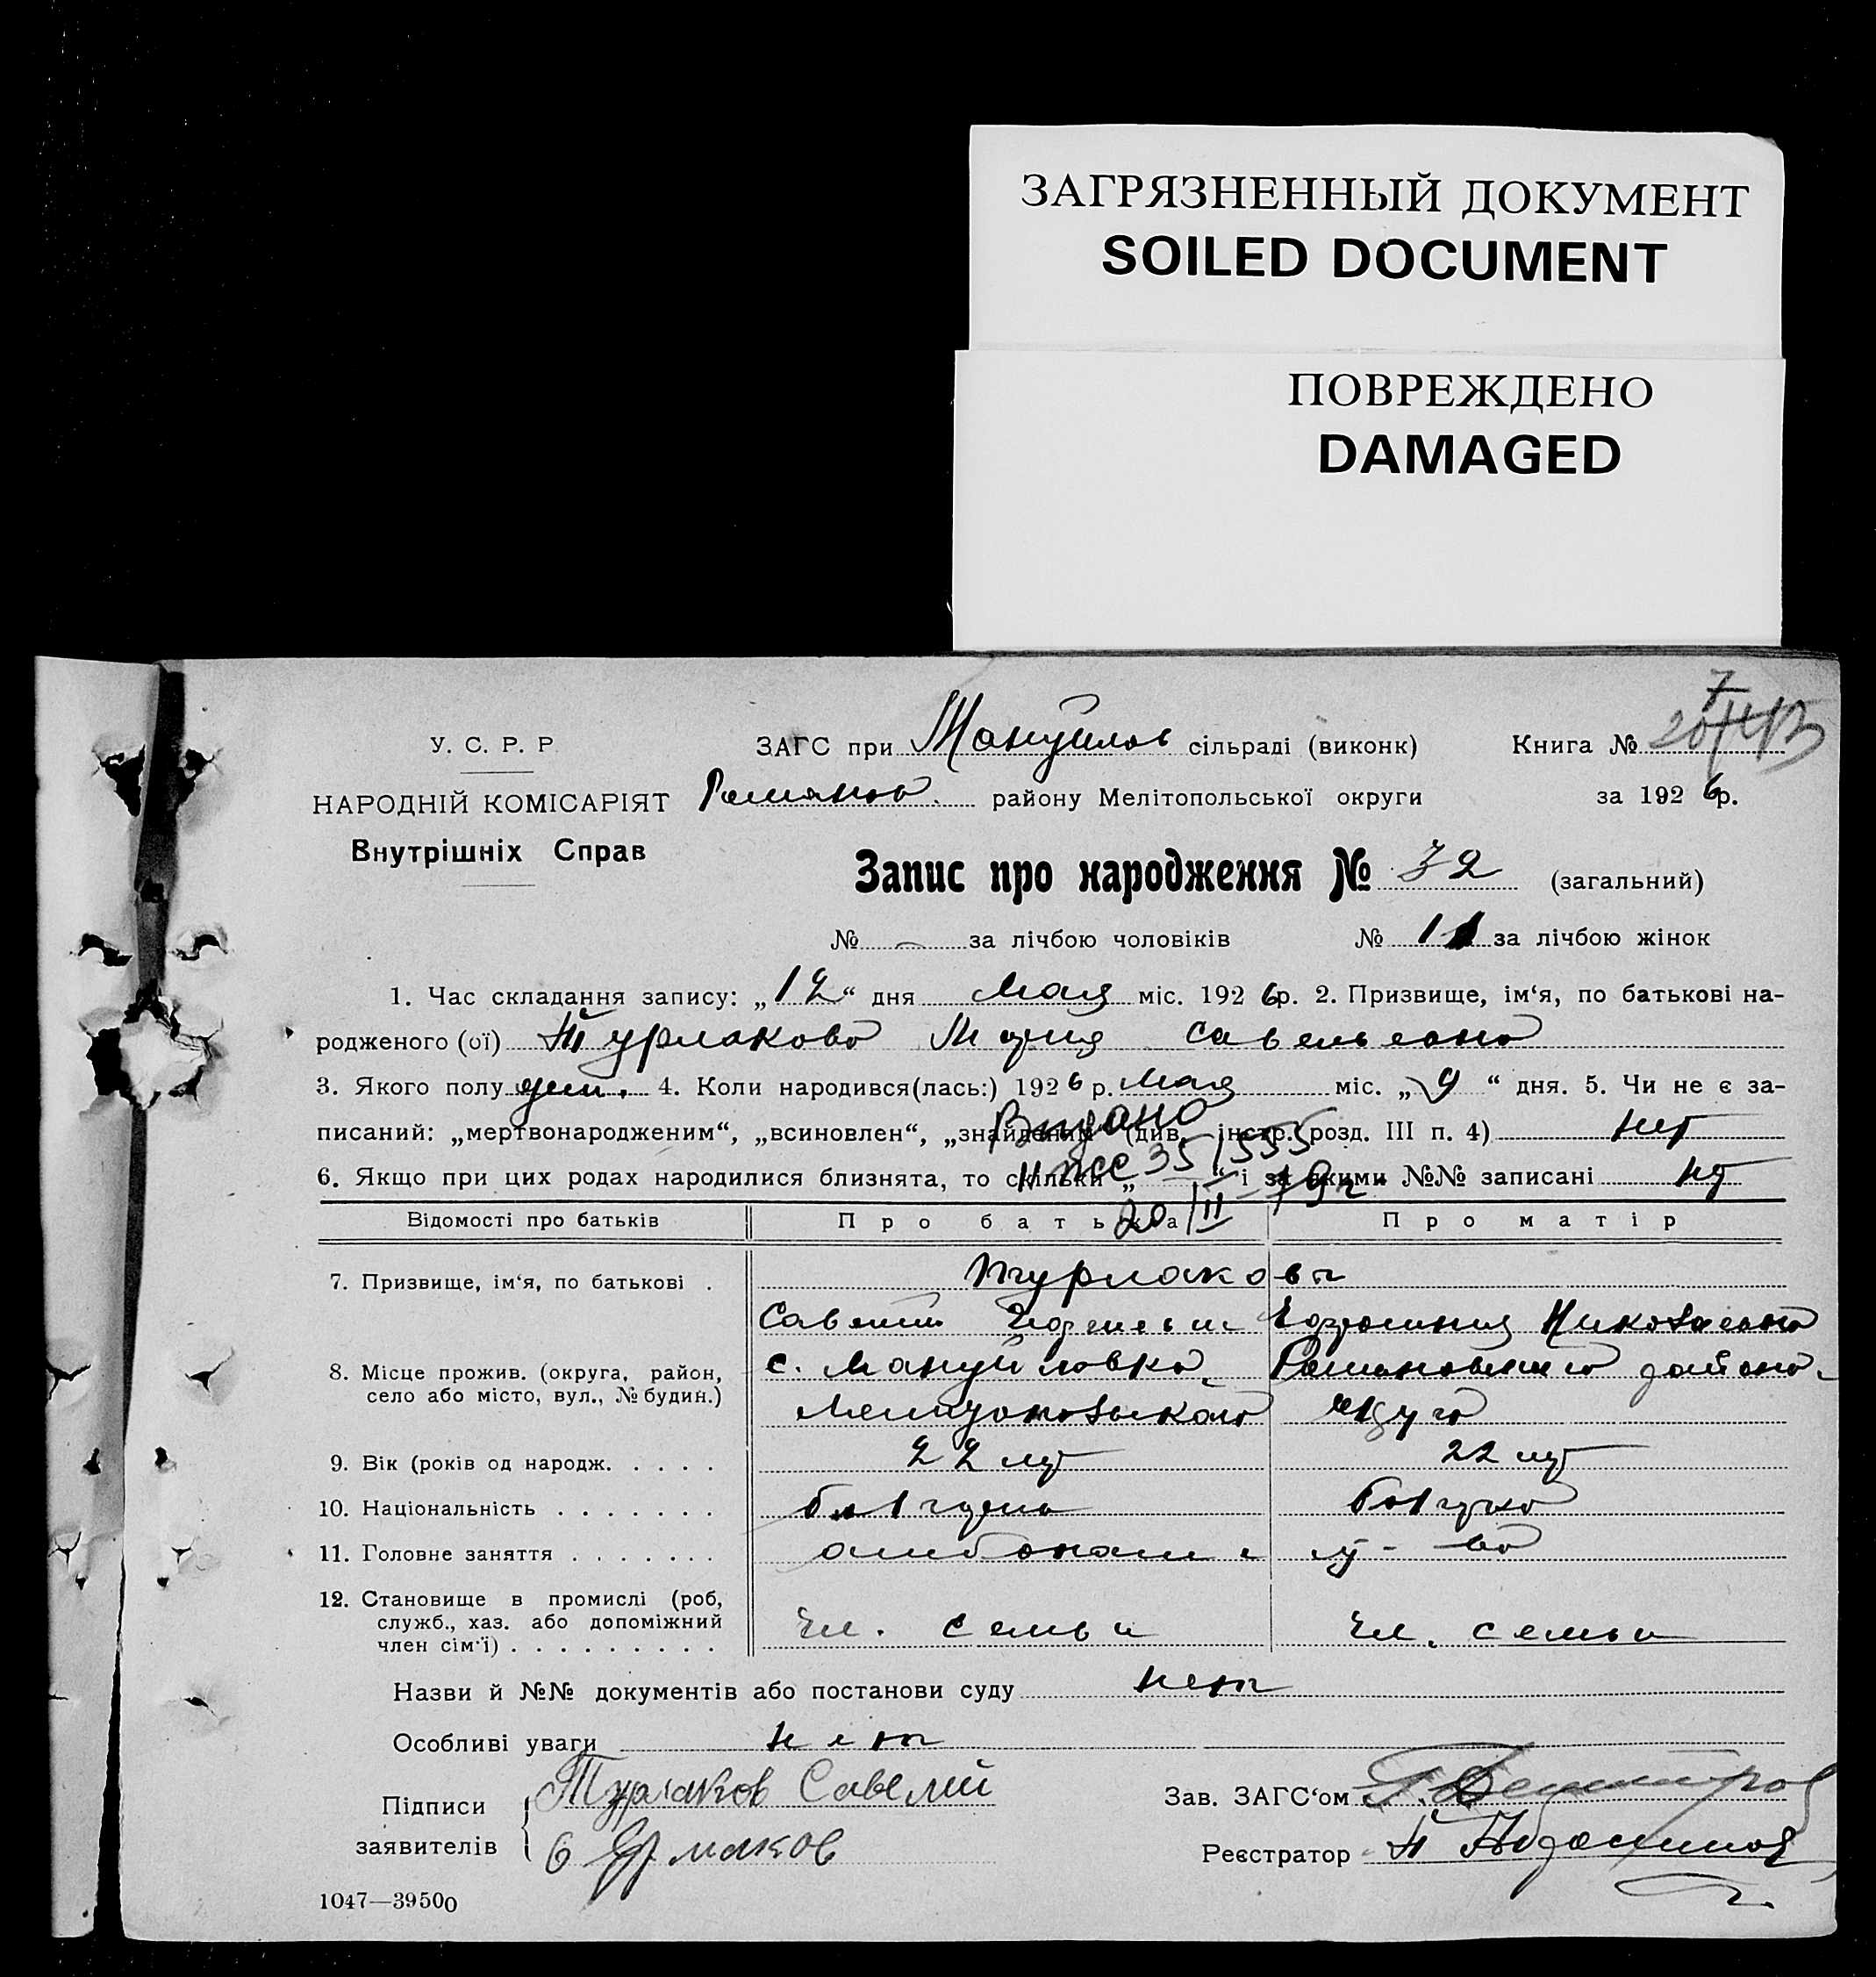 ЗАГРЯЗНЕННЫЙ ДОКУМЕНТ
SOILED DOCUMENT
ПОВРЕЖДЕНО
DAMAGED
7
У. С. Р. Р.
ЗАГС при Мануйлов сільраді (виконк) Книга №
НАРОДНІЙ КОМІСАРІЯТ Романов. району Мелітопольської округи за 1926р.
Внутрішніх Справ
Запис про народження № 32 (загальний)
№ – за лічбою чоловіків № 11 за лічбою жінок
1. Час складання запису: „12“ дня Мая міс. 1926р. 2. Призвище, ім‘я, по батькові на-
родженого (ої) Турлакова Мария Савельевна
3. Якого полу жен. 4. Коли народився(лась:) 1926р. Мая міс. „9“ дня. 5. Чи не є за-
Выдано
писаний: „мертвонародженим“, „всиновлен“, „знайдений“ (див. інстр. розд. III п. 4) нет
351555
6. Якщо при цих родах народилися близнята, то скільки „ “ і за якими №№ записані нет
20/II – 79г.
Відомості про батьків Про батька Про матір
7. Призвище, ім‘я, по батькові . Турлаковы
Савелий Николаевна
8. Місце прожив. (округа, район, с. Мануйловка, Романовского района
село або місто, вул., № будин.) Мелитопольского округа
9. Вік (років од народж. . . . . 22 лет 22 лет
10. Національність . . . . . . . болгарин болгарка
11. Головне заняття . . . . . . .
12. Становище в промислі (роб,
служб., хаз. або допоміжний чл. семьи чл. семьи
член сім‘ї) . . . . . . . . .
Назви й №№ документів або постанови суду нет
Особливі уваги нет
Підписи Турлаков Савелий Зав. ЗАГС‘ом
заявителів Реєстратор
1047—39500